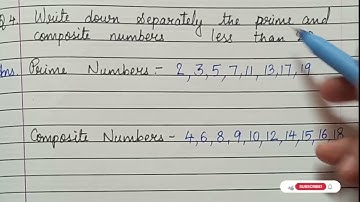 Q 4. Write down separately the prime and
composite numbers less than
Ans. Prime Numbers:- 2, 3, 5, 7, 11, 13, 17, 19
Composite Numbers - 4, 6, 8, 9, 10, 12, 14, 15, 16, 18
SUBSCRIBE